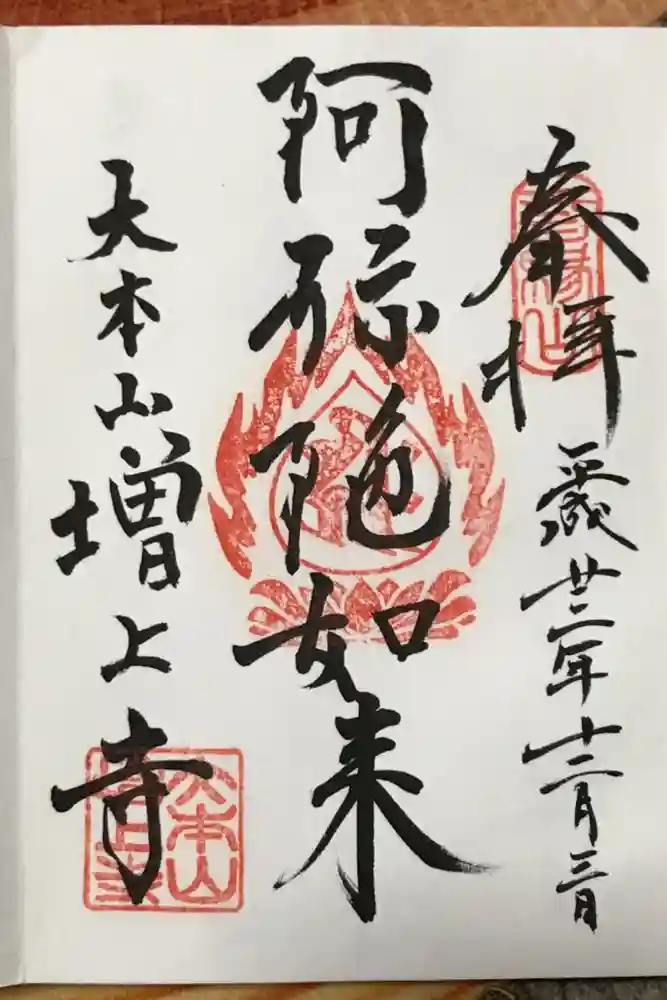 奉拝
平成廿二年十二月三日
阿弥陀如来
大本山増上寺
大本山